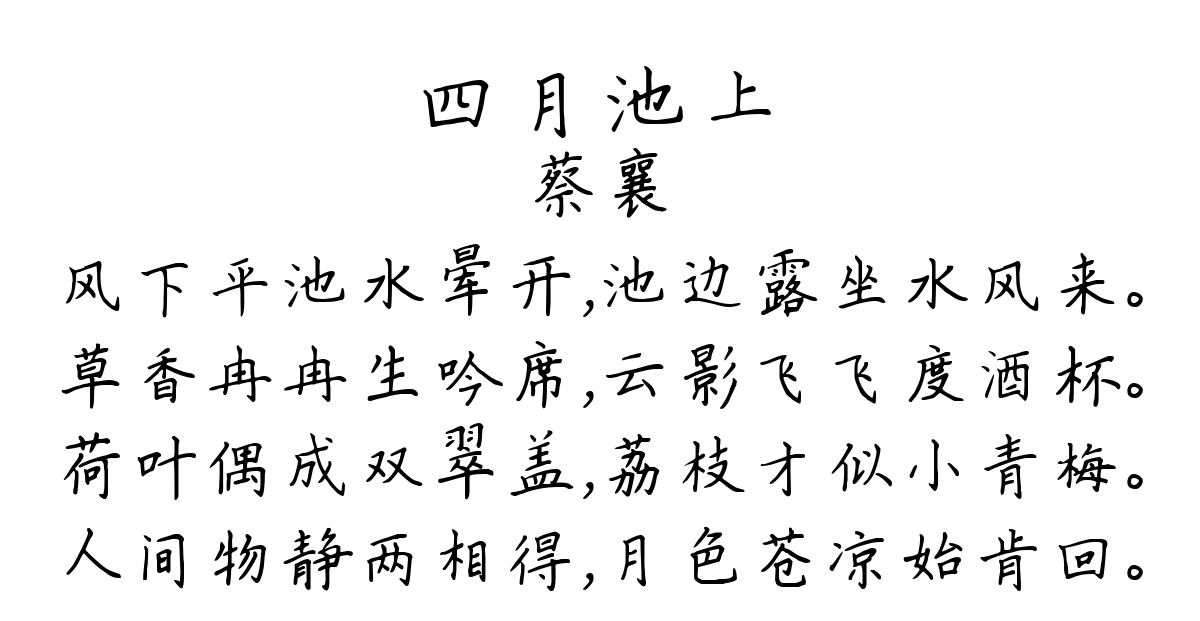 四月池上
蔡襄
风下平池水晕开,池边露坐水风来。
草香冉冉生吟席,云影飞飞度酒杯。
荷叶偶成双翠盖,荔枝才似小青梅。
人间物静两相得,月色苍凉始肯回。